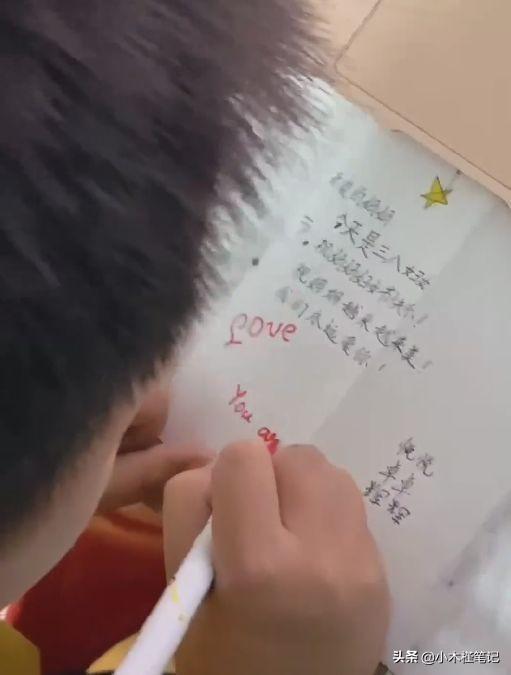 亲爱的妈妈
今天是三八妇女
节，祝妈妈妇女节快乐！
祝妈妈越来越美！
我们永远爱你！
Love
You a
悦悦
卓卓
猩猩
头条 @小木槿笔记